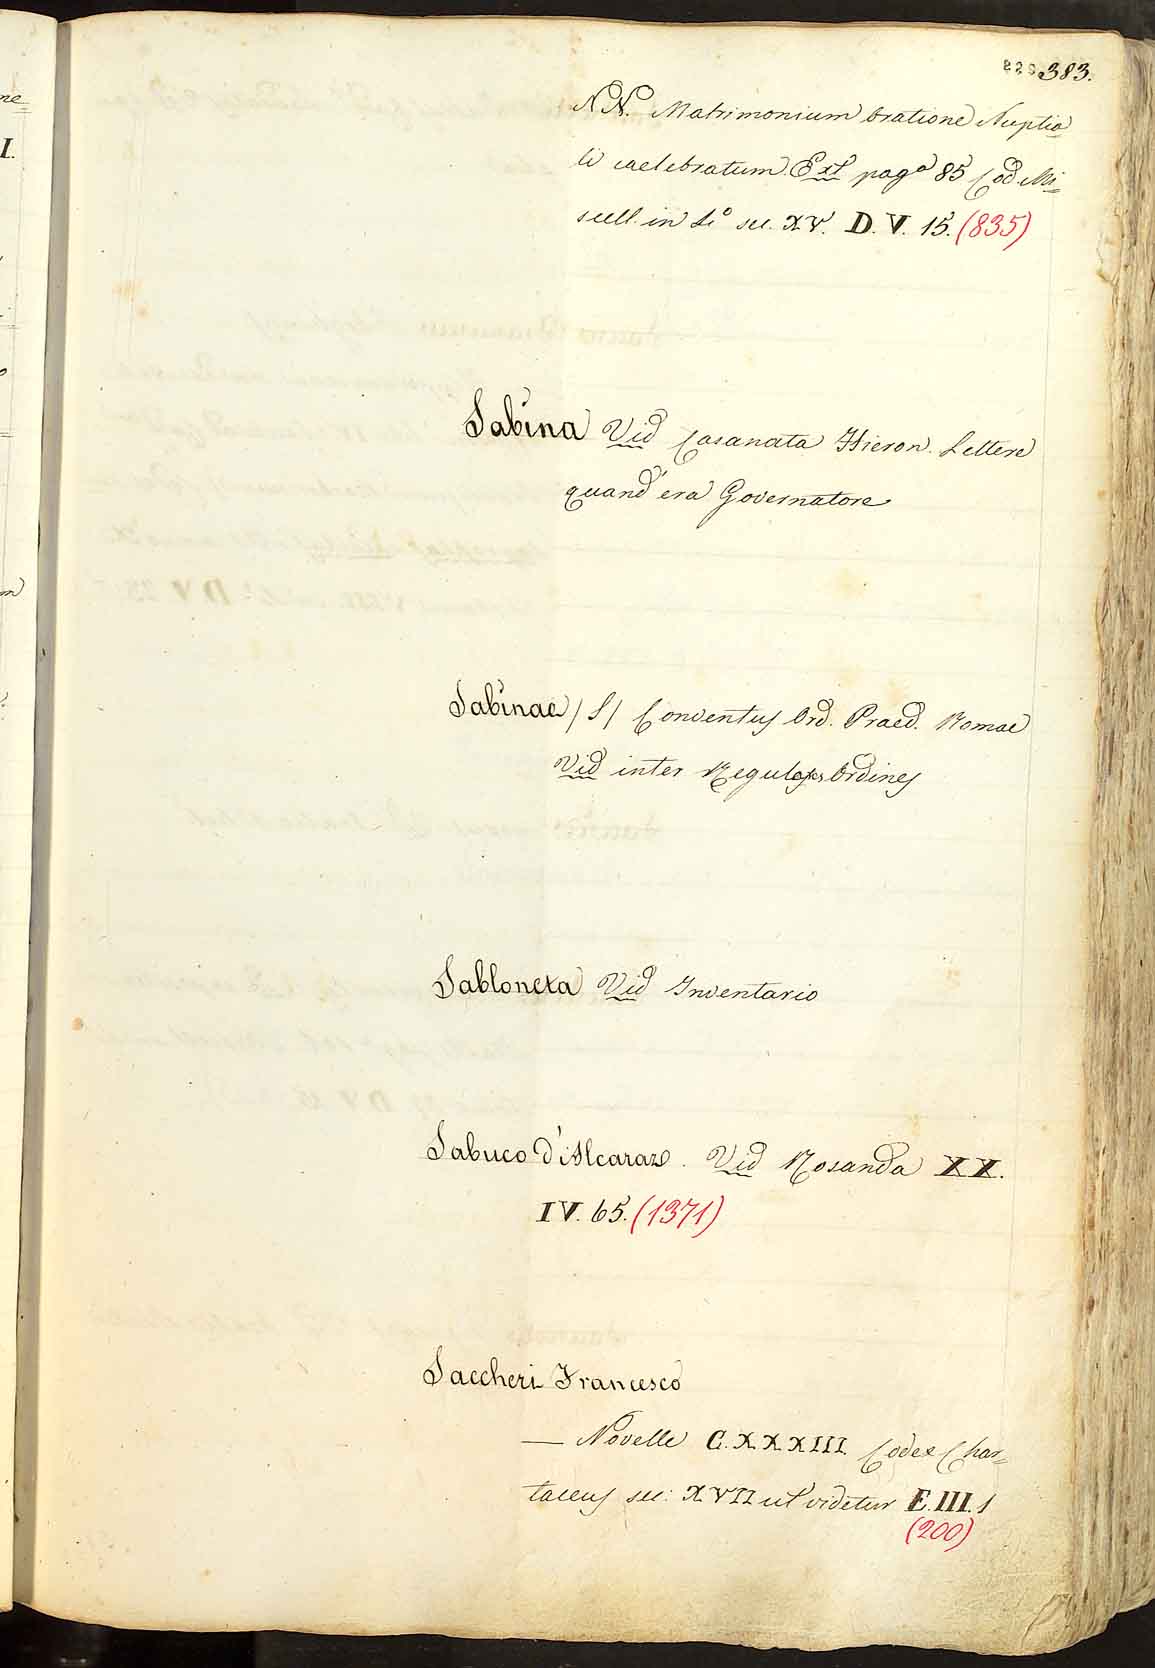 383.
N N. Matrimonium Oratione Nuptia
li caelebratum. Ext pagª 85 Cod. Mi=
scell. in 4º sec. XV. D. V. 15. (835)
Sabina Vid Casanata Hieron. Lettere
quand'era Governatore
Sabinae /S/ Conventus Ord. Praed. Romae
Vid inter Regulares Ordines
Sabloneta Vid Inventario
Sabuco d'Alcaraz. Vid Rosanda XX.
IV. 65. (1371)
Saccheri Francesco
— Novelle C. XXXIII. Codex Char=
taceus sec: XVII ut videtur E. III. 1
(200)